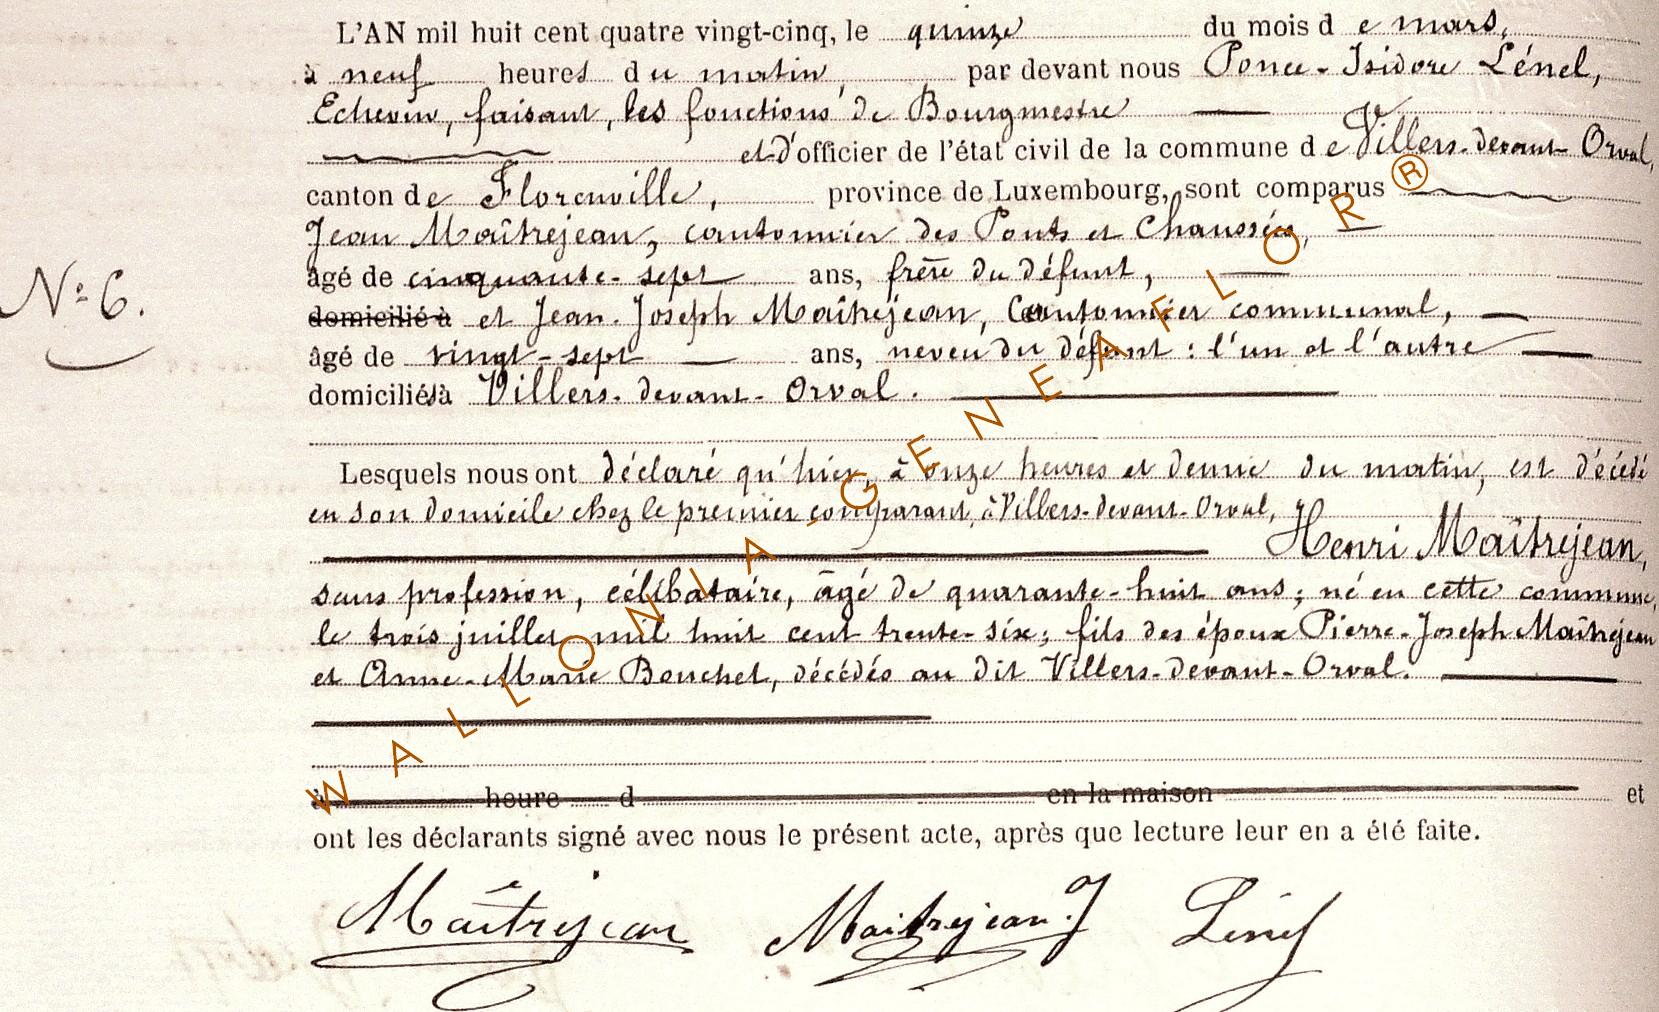 L'AN mil huit cent quatre vingt-cinq, le quinze du mois de mars,
à neuf heures du matin, par devant nous Ponce-Isidore Lénel,
Echevin, faisant les fonctions de Bourgmestre
et d'officier de l'état civil de la commune de Villers-devant-Orval,
canton de Florenville, province de Luxembourg, sont comparus
Jean Maîtrejean, cantonnier des Ponts et Chaussées,
âgé de cinquante-sept ans, frère du défunt,
N° 6.
domicilié à et Jean-Joseph Maîtrejean, Cantonnier communal,
âgé de vingt-sept ans, neveu du défunt : l'un et l'autre
domiciliés à Villers-devant-Orval.
Lesquels nous ont déclaré qu'hier, à onze heures et demie du matin, est décédé
en son domicile chez le premier comparant, à Villers-devant-Orval,
Henri Maîtrejean,
sans profession, célibataire, âgé de quarante-huit ans ; né en cette commune,
le trois juillet mil huit cent trente-six ; fils des époux Pierre-Joseph Maîtrejean
et Anne-Marie Bouchet, décédés au dit Villers-devant-Orval.
à heure d en la maison et
ont les déclarants signé avec nous le présent acte, après que lecture leur en a été faite.
Maîtrejean Maitrejean J Lénel
WALLONIA-GENEAFLOR®